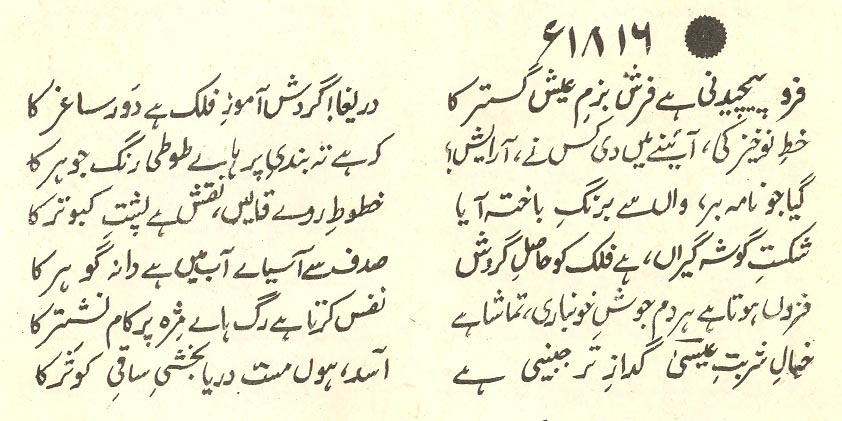 ۱۸۱۶ء
فرو پیچیدنی ہے فرشِ بزمِ عیش گستر کا دریغا! گردش آموزِ فلک ہے دَورِ ساغر کا
خطِ نوخیز کی، آئنے میں دی کس نے، آرایش؟ کہ ہے تہ بندیِ پر ہاے طوطی رنگ جوہر کا
گیا جو نامہ بر، واں سے برنگِ باختہ آیا خطوطِ روے قالیں، نقش ہے پشتِ کبوتر کا
شکستِ گوشہ گیراں، ہے فلک کو حاصلِ گردش صدف سے آسیاے آب میں ہے دانہ گوہر کا
فزوں ہوتا ہے ہر دم جوشِ خونباری، تماشا ہے نفس کرتا ہے رگ ہاے مژہ پر کام نشتر کا
خیالِ شربتِ عیسیٰ گدازِ تر جبینی ہے اسدؔ، ہوں مست دریا بخشیِ ساقیِ کوثر کا